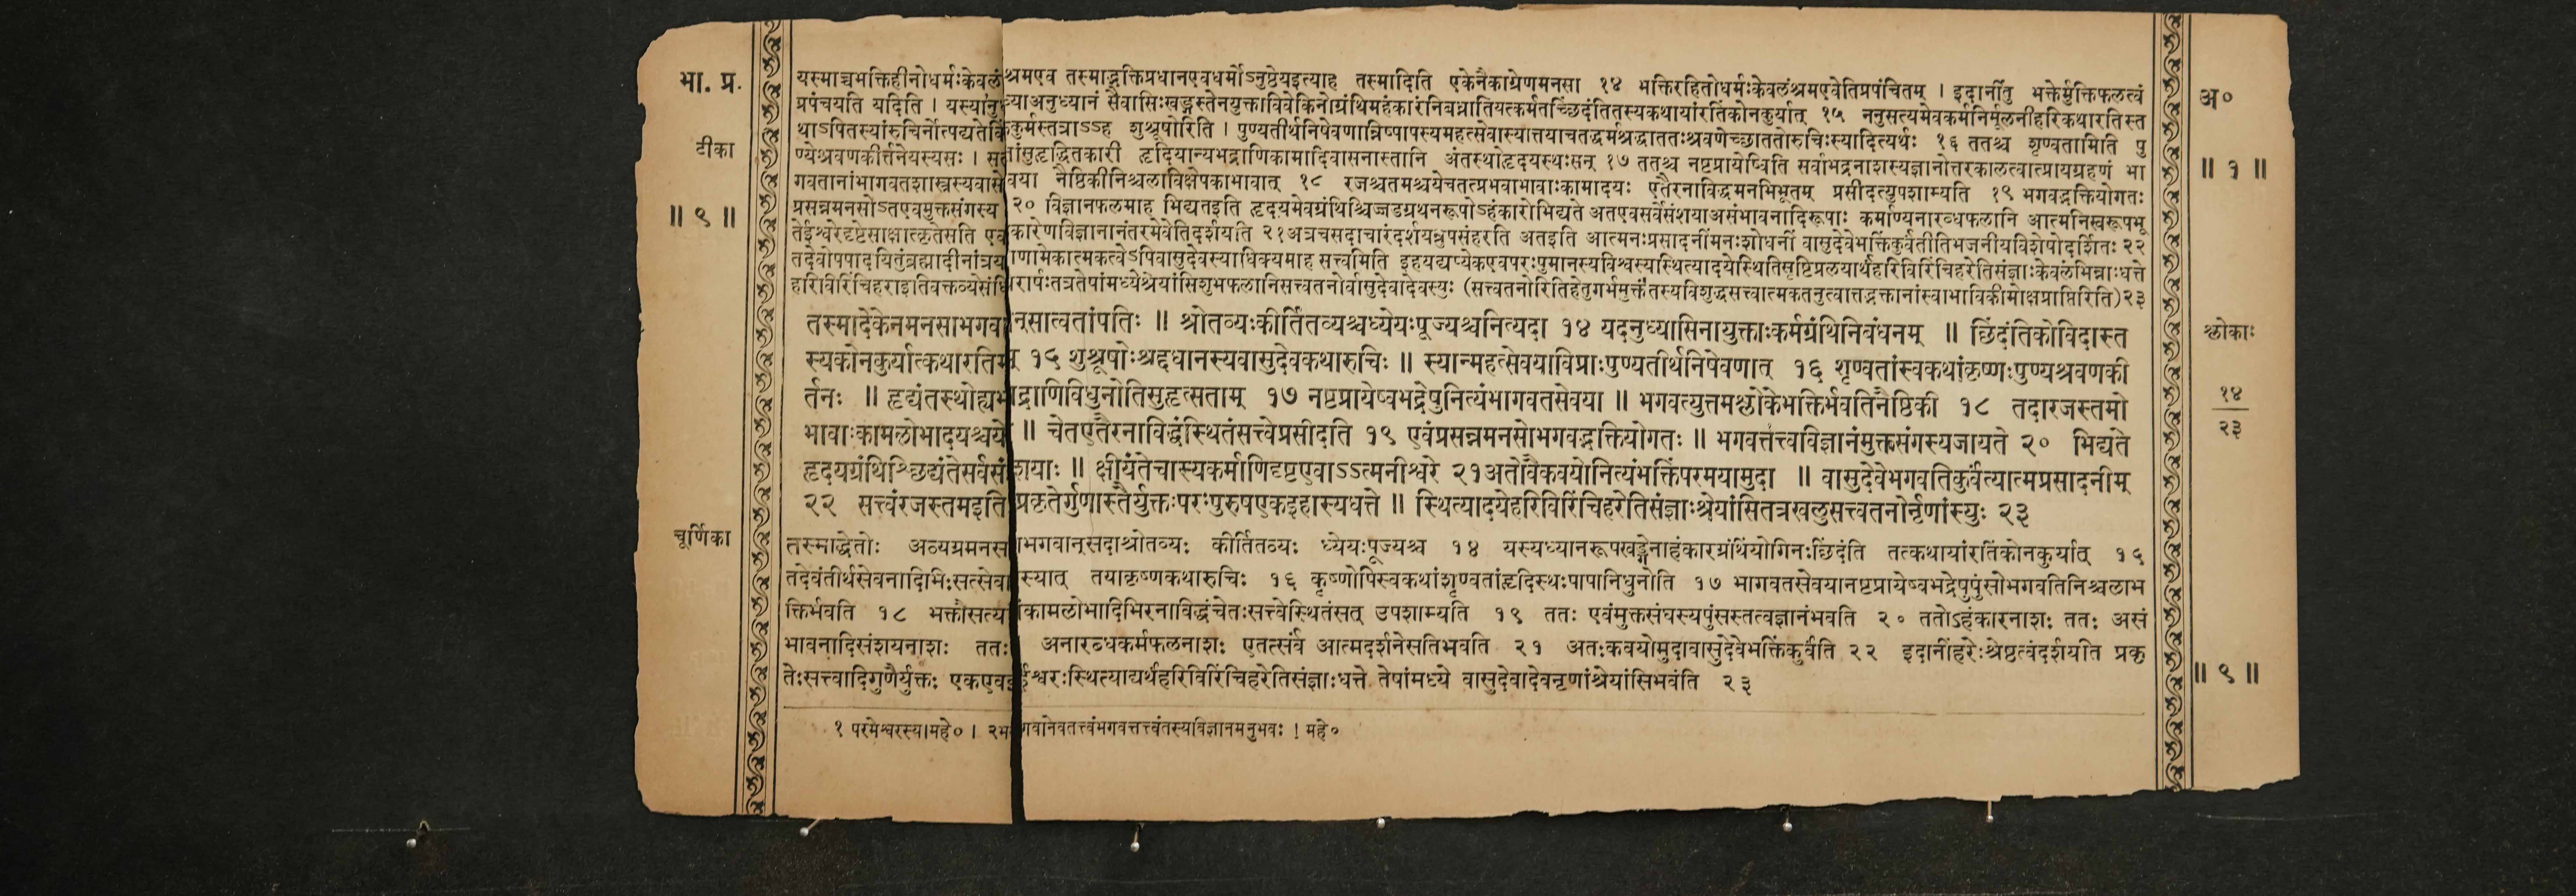 भा. प्र.
टीका
॥ ९ ॥
चूर्णिका
यस्माच्चभक्तिहीनोधर्मःकेवलंश्रमएव तस्माद्भक्तिप्रधानएवधर्मोऽनुष्ठेयइत्याह तस्मादिति एकेनैकाग्रेणमनसा १४ भक्तिरहितोधर्मःकेवलंश्रमएवेतिप्रपंचितम् । इदानींतु भक्तेर्मुक्तिफलत्वं
प्रपंचयति यदिति । यस्यानुध्याअनुध्यानं सैवासिःखड्गस्तेनयुक्ताविवेकिनोग्रंथिमहंकारंनिबध्नातियत्कर्मतच्छिंदंतितस्यकथायांरतिंकोनकुर्यात् १५ ननुसत्यमेवकर्मनिर्मूलनीहरिकथारतिस्त
थाऽपितस्यांरुचिर्नोत्पद्यतेकिंकुर्मस्तत्राऽऽह शुश्रूषोरिति । पुण्यतीर्थनिषेवणान्निष्पापस्यमहत्सेवास्यात्तयाचतद्धर्मश्रद्धाततःश्रवणेच्छाततोरुचिःस्यादित्यर्थः १६ ततश्च शृण्वतामिति पु
ण्येश्रवणकीर्त्तनेयस्यसः । सतांसुहृद्धितकारी हृदियान्यभद्राणिकामादिवासनास्तानि अंतस्थोहृदयस्थःसन् १७ ततश्च नष्टप्रायेष्विति सर्वाभद्रनाशस्यज्ञानोत्तरकालत्वात्प्रायग्रहणं भा
गवतानांभागवतशास्त्रस्यवासेवया नैष्ठिकीनिश्चलाविक्षेपकाभावात् १८ रजश्चतमश्चयेचतत्प्रभवाभावाःकामादयः एतैरनाविद्धमनभिभूतम् प्रसीदत्युपशाम्यति १९ भगवद्भक्तियोगतः
प्रसन्नमनसोऽतएवमुक्तसंगस्य २० विज्ञानफलमाह भिद्यतइति हृदयमेवग्रंथिश्चिज्जडग्रथनरूपोऽहंकारोभिद्यते अतएवसर्वेसंशयाअसंभावनादिरूपाः कर्माण्यनारब्धफलानि आत्मनिस्वरूपभू
तेईश्वरेदृष्टेसाक्षात्कृतेसति एवकारेणविज्ञानानंतरमेवेतिदर्शयति २१अत्रचसदाचारंदर्शयन्नुपसंहरति अतइति आत्मनःप्रसादनींमनःशोधनीं वासुदेवेभक्तिंकुर्वंतीतिभजनीयविशेषोदर्शितः २२
तदेवोपपादयितुंब्रह्मादीनांत्रयाणामेकात्मकत्वेऽपिवासुदेवस्याधिक्यमाह सत्त्वमिति इहयद्यप्येकएवपरःपुमानस्यविश्वस्यस्थित्यादयेस्थितिसृष्टिप्रलयार्थंहरिविरिंचिहरेतिसंज्ञाःकेवलंभिन्नाःधत्ते
हरिविरिंचिहराइतिवक्तव्येसंधिरार्षःतत्रतेषांमध्येश्रेयांसिशुभफलानिसत्त्वतनोर्वासुदेवादेवस्युः (सत्त्वतनोरितिहेतुगर्भमुक्तंतस्यविशुद्धसत्त्वात्मकतनुत्वात्तद्भक्तानांस्वाभाविकीमोक्षप्राप्तिरिति)२३
तस्मादेकेनमनसाभगवान्सात्वतांपतिः ॥ श्रोतव्यःकीर्तितव्यश्चध्येयःपूज्यश्चनित्यदा १४ यदनुध्यासिनायुक्ताःकर्मग्रंथिनिबंधनम् ॥ छिंदंतिकोविदास्त
स्यकोनकुर्यात्कथारतिम् १५ शुश्रूषोःश्रद्दधानस्यवासुदेवकथारुचिः ॥ स्यान्महत्सेवयाविप्राःपुण्यतीर्थनिषेवणात् १६ शृण्वतांस्वकथांकृष्णःपुण्यश्रवणकी
र्तनः ॥ हृद्यंतस्थोह्यभद्राणिविधुनोतिसुहृत्सताम् १७ नष्टप्रायेष्वभद्रेषुनित्यंभागवतसेवया ॥ भगवत्युत्तमश्लोकेभक्तिर्भवतिनैष्ठिकी १८ तदारजस्तमो
भावाःकामलोभादयश्चये ॥ चेतएतैरनाविद्धंस्थितंसत्त्वेप्रसीदति १९ एवंप्रसन्नमनसोभगवद्भक्तियोगतः ॥ भगवत्तत्त्वविज्ञानंमुक्तसंगस्यजायते २० भिद्यते
हृदयग्रंथिश्छिद्यंतेसर्वसंशयाः ॥ क्षीयंतेचास्यकर्माणिदृष्टएवाऽऽत्मनीश्वरे २१अतोवैकवयोनित्यंभक्तिंपरमयामुदा ॥ वासुदेवेभगवतिकुर्वंत्यात्मप्रसादनीम्
२२ सत्त्वंरजस्तमइतिप्रकृतेर्गुणास्तैर्युक्तःपरःपुरुषएकइहास्यधत्ते ॥ स्थित्यादयेहरिविरिंचिहरेतिसंज्ञाःश्रेयांसितत्रखलुसत्त्वतनोर्नृणांस्युः २३
तस्माद्धेतोः अव्यग्रमनसाभगवान्सदाश्रोतव्यः कीर्तितव्यः ध्येयःपूज्यश्च १४ यस्यध्यानरूपखड्गेनाहंकारग्रंथिंयोगिनःछिंदंति तत्कथायांरतिंकोनकुर्यात् १५
तदेवंतीर्थसेवनादिभिःसत्सेवास्यात् तयाकृष्णकथारुचिः १६ कृष्णोपिस्वकथांशृण्वतांहृदिस्थःपापानिधुनोति १७ भागवतसेवयानष्टप्रायेष्वभद्रेषुपुंसोभगवतिनिश्चलाभ
क्तिर्भवति १८ भक्तौसत्यांकामलोभादिभिरनाविद्धंचेतःसत्त्वेस्थितंसत् उपशाम्यति १९ ततः एवंमुक्तसंघस्यपुंसस्तत्वज्ञानंभवति २० ततोऽहंकारनाशः ततः असं
भावनादिसंशयनाशः ततः अनारब्धकर्मफलनाशः एतत्सर्वं आत्मदर्शनेसतिभवति २१ अतःकवयोमुदावासुदेवेभक्तिंकुर्वंति २२ इदानींहरेःश्रेष्ठत्वंदर्शयति प्रकृ
तेःसत्त्वादिगुणैर्युक्तः एकएवईश्वरःस्थित्याद्यर्थंहरिविरिंचिहरेतिसंज्ञाःधत्ते तेषांमध्ये वासुदेवादेवनृणांश्रेयांसिभवंति २३
१ परमेश्वरस्य।महे० । २भगवानेवतत्त्वंभगवत्तत्त्वंतस्यविज्ञानमनुभवः ! महे०
अ०
॥ १ ॥
श्लोकाः
१४
२३
॥ ९ ॥